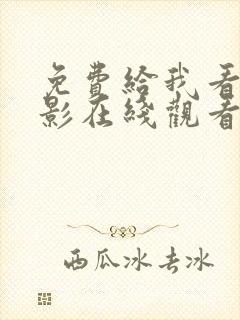 免費給我看
影在綫觀看
西瓜冰去冰